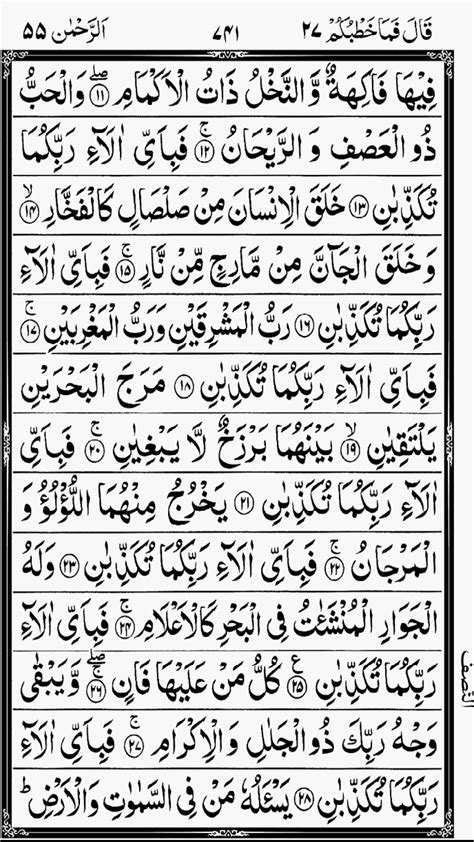 قَالَ فَمَا خَطْبُكُمْ ٢٧ ٧٤١ اَلرَّحْمٰن ٥٥
فِيْهَا فَاكِهَةٌ وَّ النَّخْلُ ذَاتُ الْاَكْمَامِ ۖ ﴿١١﴾ وَالْحَبُّ
ذُو الْعَصْفِ وَ الرَّيْحَانُ ۚ ﴿١٢﴾ فَبِاَيِّ اٰلَآءِ رَبِّكُمَا
تُكَذِّبٰنِ ﴿١٣﴾ خَلَقَ الْاِنْسَانَ مِنْ صَلْصَالٍ كَالْفَخَّارِ ۙ ﴿١٤﴾
وَ خَلَقَ الْجَآنَّ مِنْ مَّارِجٍ مِّنْ نَّارٍ ۚ ﴿١٥﴾ فَبِاَيِّ اٰلَآءِ
رَبِّكُمَا تُكَذِّبٰنِ ﴿١٦﴾ رَبُّ الْمَشْرِقَيْنِ وَرَبُّ الْمَغْرِبَيْنِ ۚ ﴿١٧﴾
فَبِاَيِّ اٰلَآءِ رَبِّكُمَا تُكَذِّبٰنِ ﴿١٨﴾ مَرَجَ الْبَحْرَيْنِ
يَلْتَقِيٰنِ ۙ ﴿١٩﴾ بَيْنَهُمَا بَرْزَخٌ لَّا يَبْغِيٰنِ ۚ ﴿٢٠﴾ فَبِاَيِّ
اٰلَآءِ رَبِّكُمَا تُكَذِّبٰنِ ﴿٢١﴾ يَخْرُجُ مِنْهُمَا اللُّؤْلُؤُ وَ
الْمَرْجَانُ ۚ ﴿٢٢﴾ فَبِاَيِّ اٰلَآءِ رَبِّكُمَا تُكَذِّبٰنِ ﴿٢٣﴾ وَلَهُ
الْجَوَارِ الْمُنْشَئٰتُ فِي الْبَحْرِ كَالْاَعْلَامِ ۚ ﴿٢٤﴾ فَبِاَيِّ اٰلَآءِ
رَبِّكُمَا تُكَذِّبٰنِ ۧ ﴿٢٥﴾ كُلُّ مَنْ عَلَيْهَا فَانٍ ۖ ۚ ﴿٢٦﴾ وَّ يَبْقٰى
وَجْهُ رَبِّكَ ذُو الْجَلٰلِ وَ الْاِكْرَامِ ۚ ﴿٢٧﴾ فَبِاَيِّ اٰلَآءِ
رَبِّكُمَا تُكَذِّبٰنِ ﴿٢٨﴾ يَسْـَٔلُهٗ مَنْ فِي السَّمٰوٰتِ وَالْاَرْضِ ؕ
النّصف